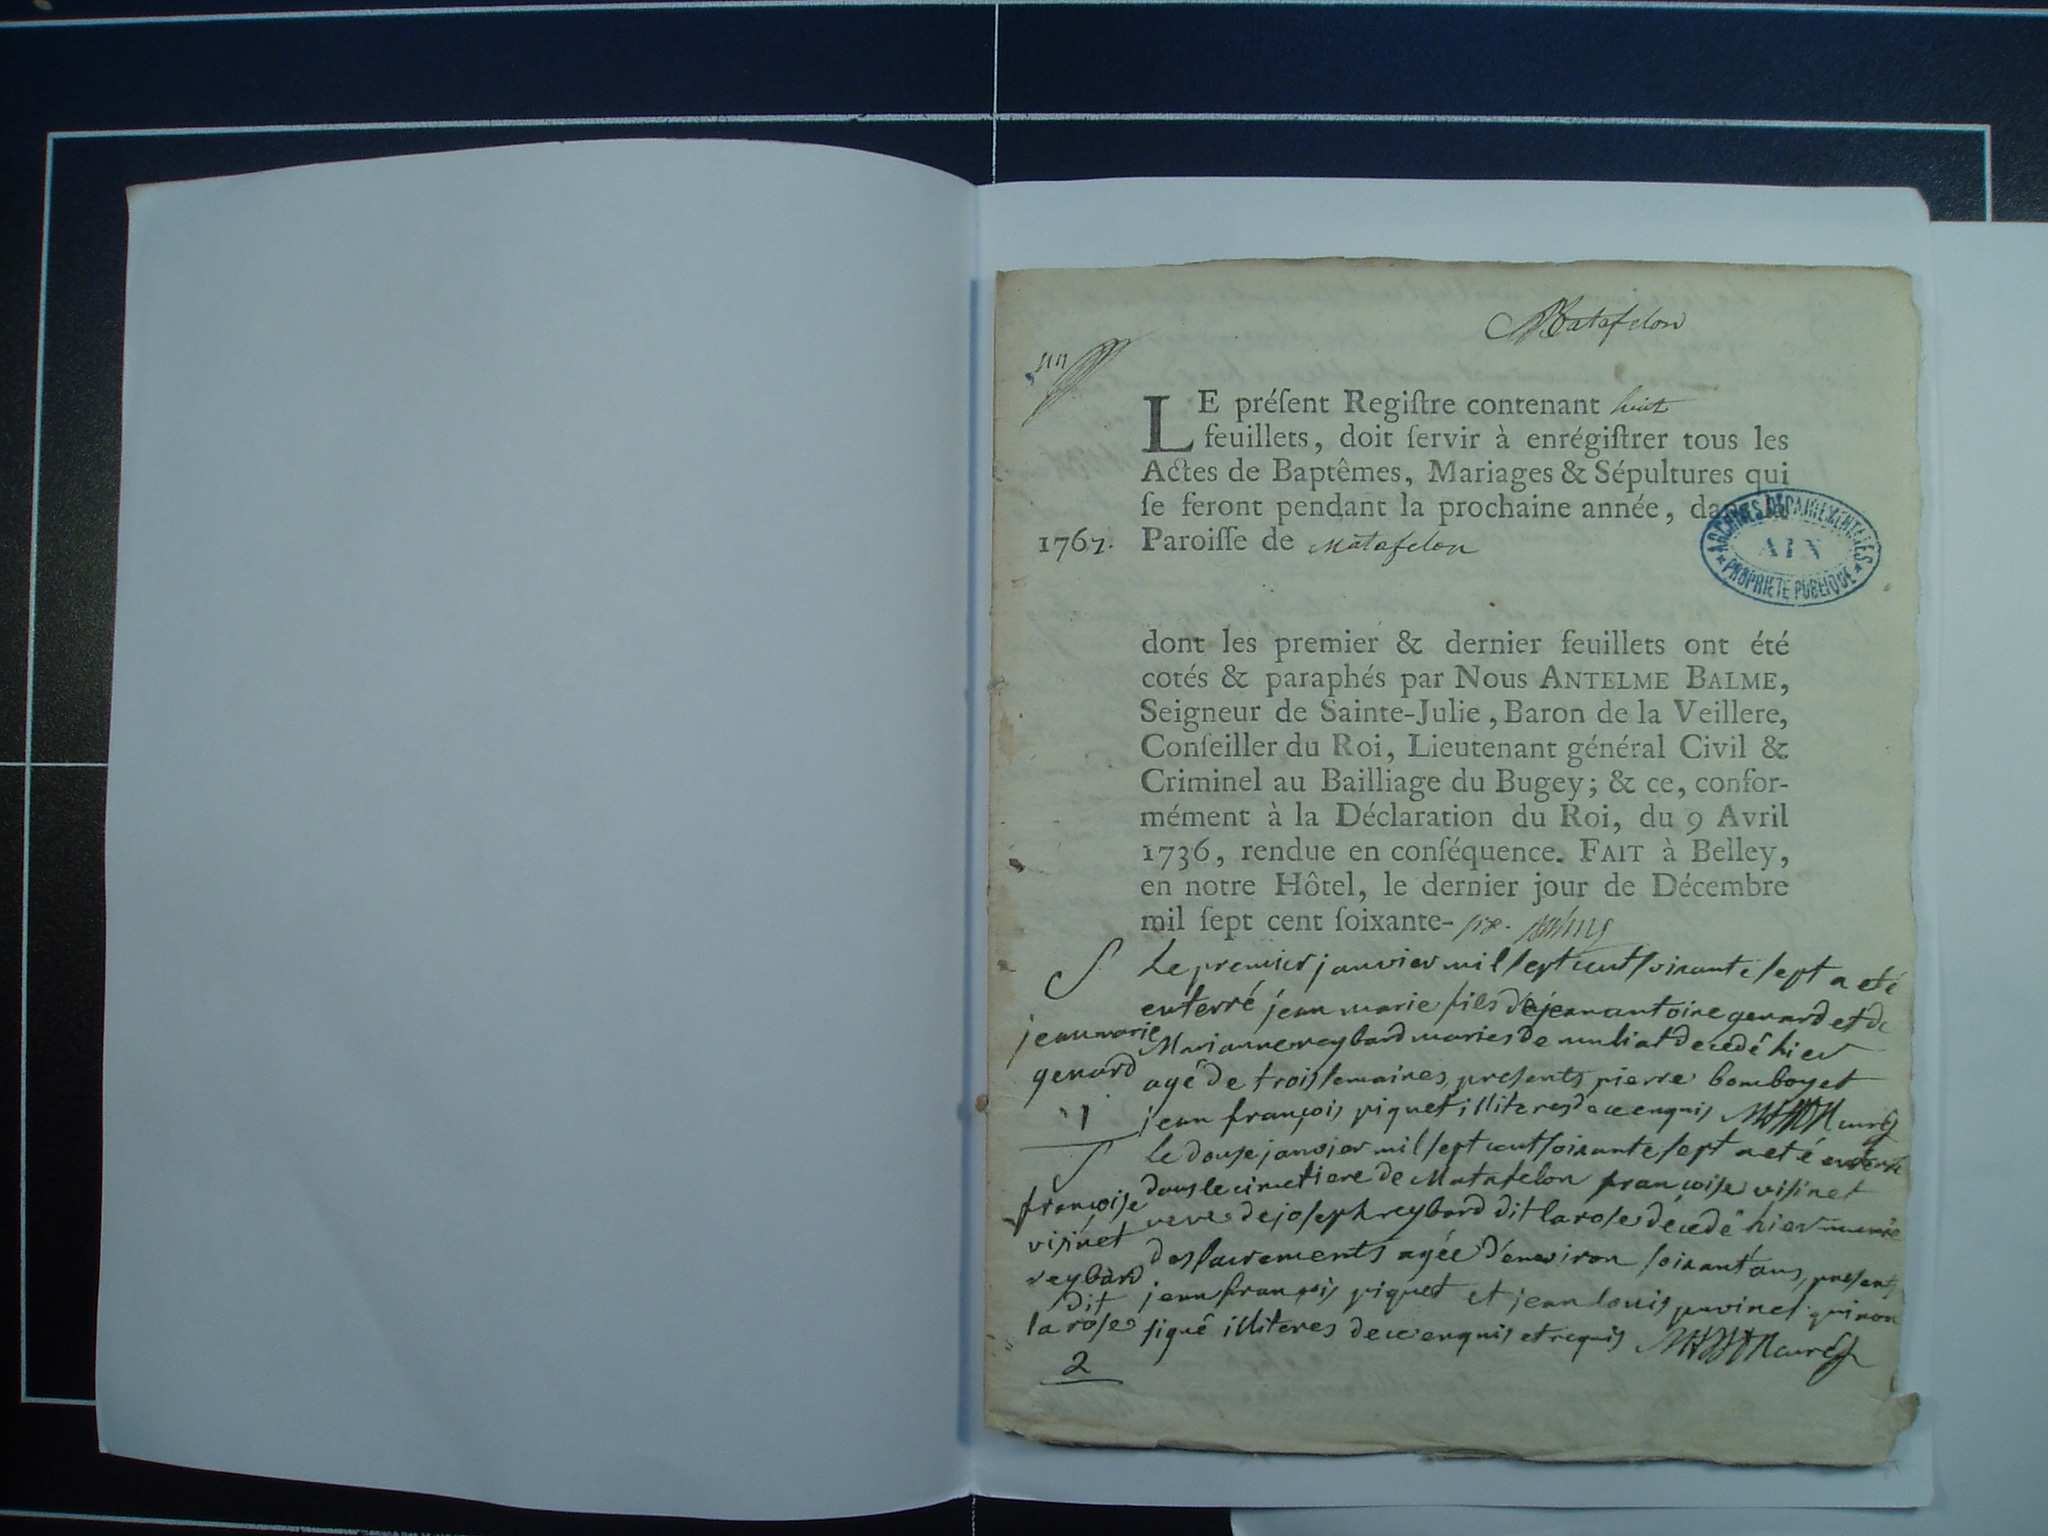 Matafelon
LE préſent Regiſtre contenant huit
feuillets, doit ſervir à enrégiſtrer tous les
Actes de Baptêmes, Mariages & Sépultures qui
ſe feront pendant la prochaine année, da
1767. Paroiſſe de Matafelon
ARCHIVES DEPARTEMENTALES
AIN
PROPRIETE PUBLIQUE
dont les premier & dernier feuillets ont été
cotés & paraphés par Nous ANTELME BALME,
Seigneur de Sainte-Julie, Baron de la Veillere,
Conſeiller du Roi, Lieutenant général Civil &
Criminel au Bailliage du Bugey; & ce, confor-
mément à la Déclaration du Roi, du 9 Avril
1736, rendue en conſéquence. FAIT à Belley,
en notre Hôtel, le dernier jour de Décembre
mil ſept cent ſoixante- six.
S
jean marie
genard
1
Le premier janvier mil sept cent soixante sept a eté
enterré jean marie fils de jean antoine genard et de
Marianne reybard mariés de decedé hier
agé de trois semaines, presents pierre bomboy et
jean françois piquet illiteres de ce enquis curé
S
françoise
visinet
reybard
dit
la rose
2
le douse janvier mil sept cent soixante sept a eté enterré
dans le cimetiere de Matafelon françoise visinet
veve de joseph reybard dit la rose décedé hier munie
des sacrements agée d'environ soixant'ans, presents
jean françois piquet et jean louis qui non
signé illiteres de ce enquis et requis curé